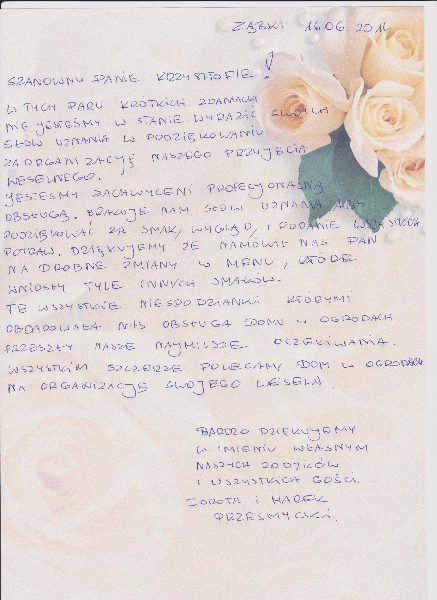 ZĄBKI 16.06.2014
SZANOWNY PANIE KRZYSZTOFIE!
W TYCH PARU KRÓTKICH ZDANIACH
NIE JESTEŚMY W STANIE WYRAZIĆ
SŁÓW UZNANIA W PODZIĘKOWANIU
ZA ORGANIZACJĘ NASZEGO PRZYJĘCIA
WESELNEGO.
JESTEŚMY ZACHWYCENI PROFESJONALNĄ
OBSŁUGĄ. BRAKUJE NAM SŁÓW UZNANIA ABY
PODZIĘKOWAĆ ZA SMAK, WYGLĄD, I PODANIE WSZYSTKICH
POTRAW. DZIĘKUJEMY ŻE NAMÓWIŁ NAS PAN
NA DROBNE ZMIANY W MENU, KTÓRE
WNIOSŁY TYLE INNYCH SMAKÓW.
TE WSZYSTKIE NIESPODZIANKI KTÓRYMI
OBDAROWAŁA NAS OBSŁUGA DOMU W OGRODACH
PRZESZŁY NASZE NAJMILSZE OCZEKIWANIA.
WSZYSTKIM SZCZERZE POLECAMY DOM W OGRODACH
NA ORGANIZACJĘ SWOJEGO WESELA.
BARDZO DZIĘKUJEMY
W IMIENIU WŁASNYM
NASZYCH RODZICÓW
I WSZYSTKICH GOŚCI.
DOROTA I MAREK
PRZESMYCKI.